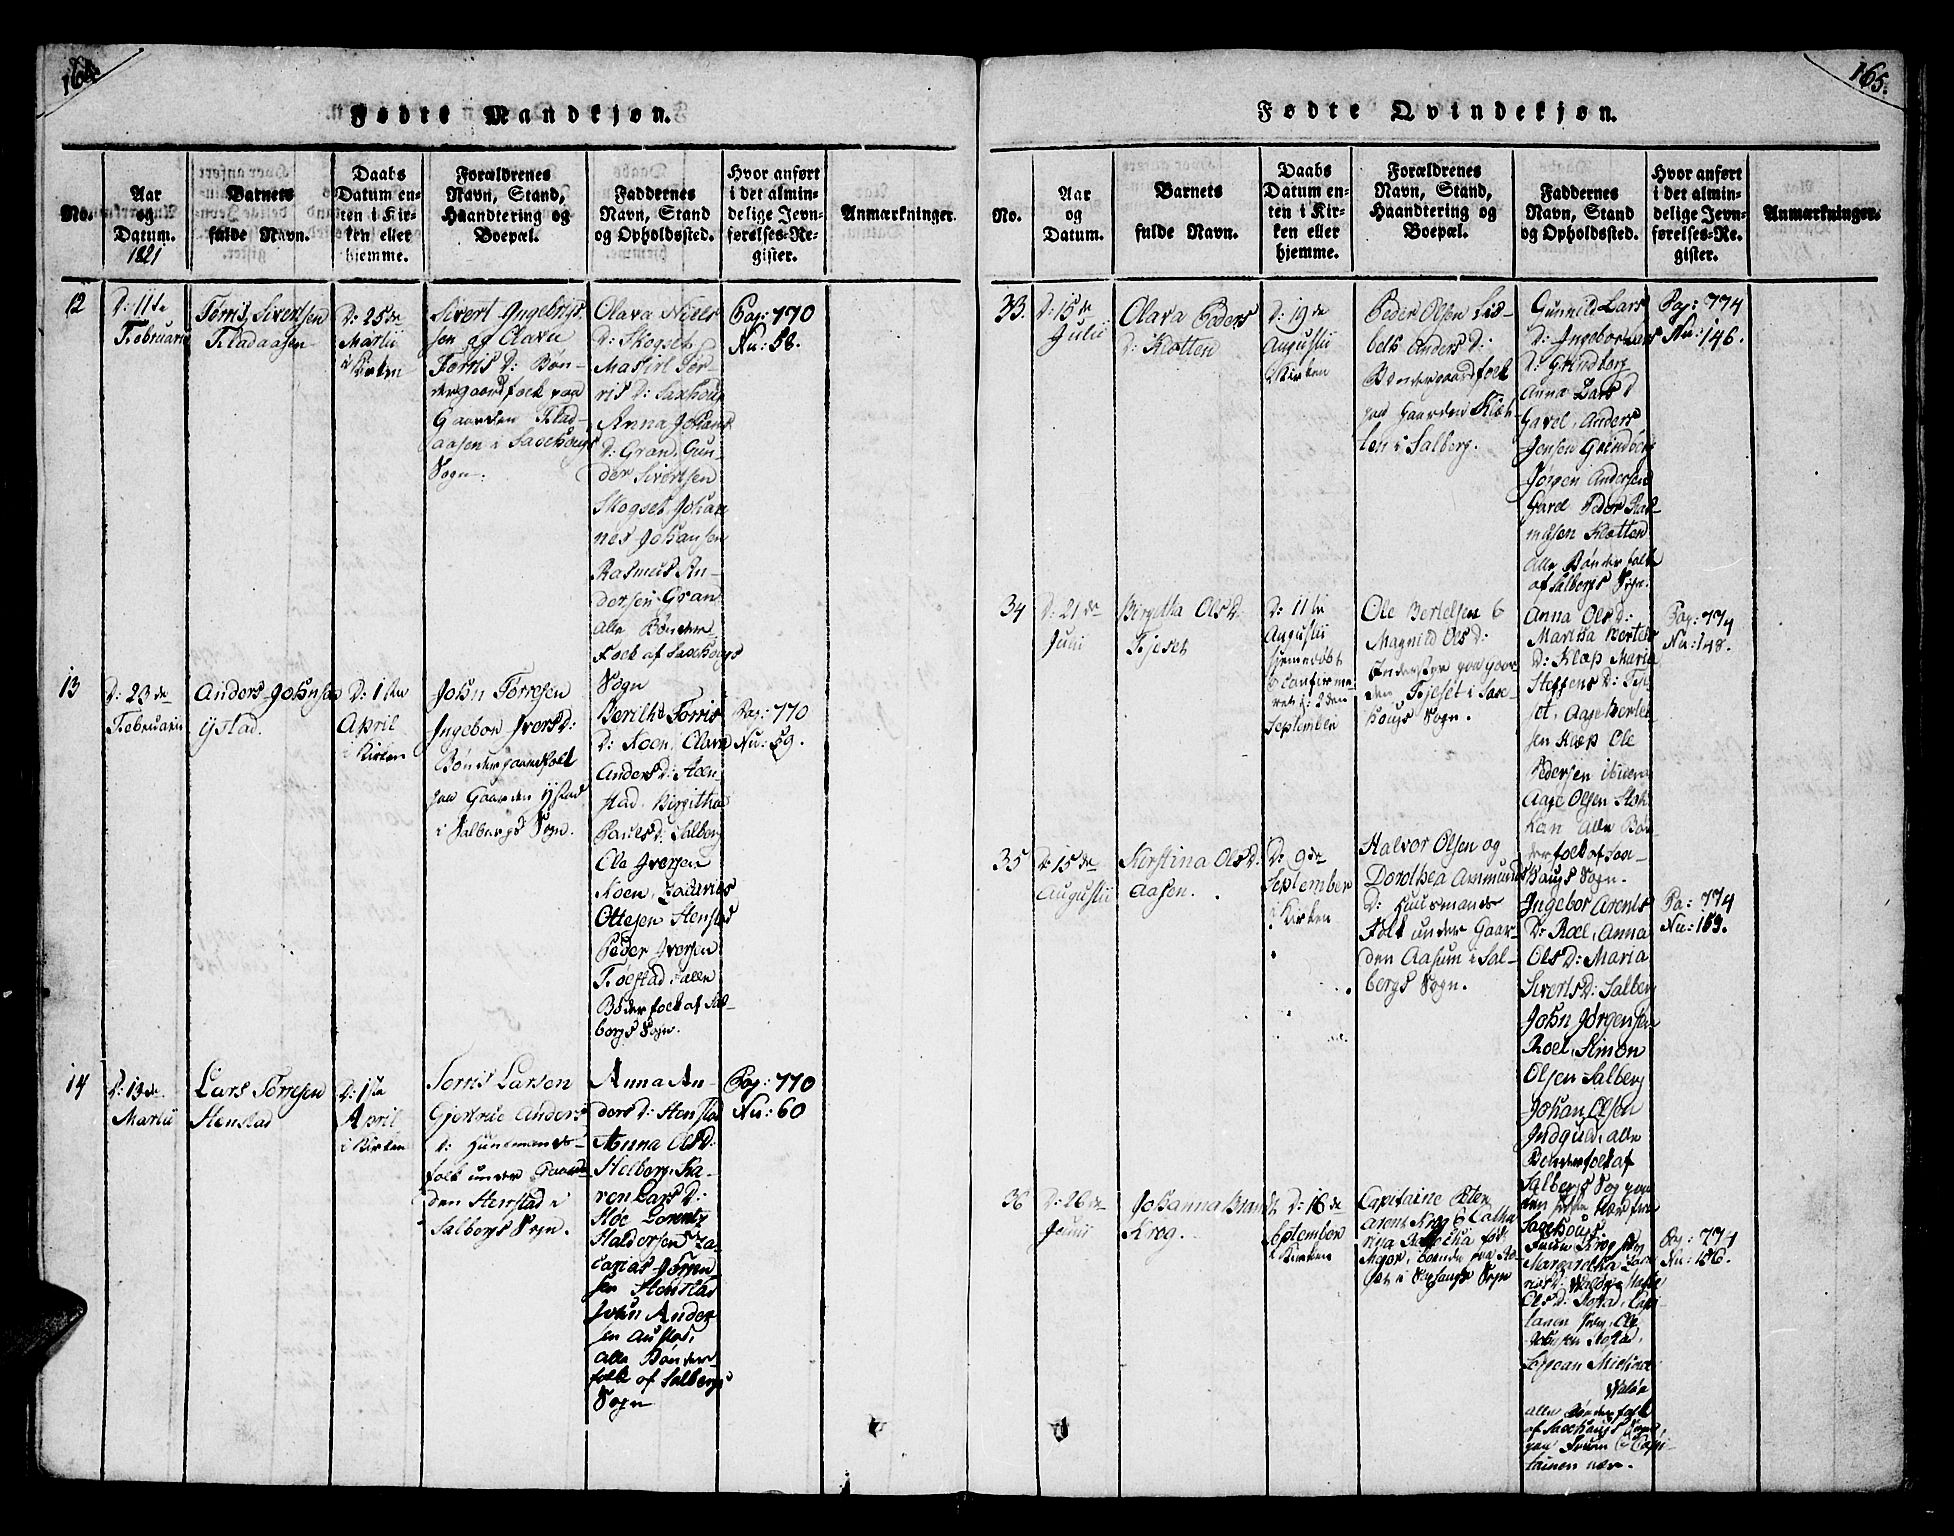 164.
Fødte Mandkjøn.
No.
Aar
og
Datum.
1821
Barnets
fulde Navn.
Daabs
Datum en-
ten i Kir-
ken eller
hjemme.
Forældrenes
Navn, Stand,
Haandtering og
Boepæl.
Faddernes
Navn, Stand
og Opholdssted.
Hvor anført
i det almin-
delige Jevn-
førelses-Re-
gister.
Anmærkninger.
12
D: 11te
Februarii
Tørris Sivertsen
Fladaasen
D: 25de
Martii
i Kirken
Sivert Ingebrigt
sen og Olava
Torris D: Bøn-
dergaardfolk paa
Gaarden Flad-
aasen i Saxehougs
Sogn.
Olava Niels
D: Skogset
Masirl Tør-
ris D: Saxhoug
Anna Johans
D: Gran, Gun-
der Sivertsen
Skogset, Johan
nes Johansen
Rasmus An-
dersen Gran
alle Bønder
Folk af Saxehougs
Sogn
Pag: 770
Nu: 58.
13
D: 23de
Februarii
Anders Johnsen
Ystad.
D: 1ste
April
i Kirken
John Tørresen
Ingebor Ivers D:
Bøndergaardfolk
paa Gaarden Ystad
i Salbergs Sogn.
Berith Torris
D: Koen, Olava
Anders D: Aoen
stad, Birgitha
Pauls D: Salberg
Ole Iversen
Koen, Zacarias
Ottesen Stenstad
Peder Iversen
Tioestad, alle
Bønderfolk af Sal-
bergs Sogn.
Pag: 770
Nu: 59.
14
D: 13de
Martii
Lars Tørresen
Stenstad
D: 1ste
April
i Kirken
Torris Larsen
Gjertrue Anders
D: Huusmands-
folk under Gaar-
den Stenstad i
Salbergs Sogn.
Anna An-
ders D: Stenstad
Anna Ols D:
Stelberg, Ka-
ren Lars D:
Støe Lorentz
Haldorsen Za-
carias Tørren
sen Stenstad
John Ander
sen Austad,
alle Bønder-
folk af Salbergs
Sogn
Pag: 770
Nu: 60
165.
Fødte Qvindekjøn.
No.
Aar
og
Datum.
Barnets
fulde Navn.
Daabs
Datum en-
ten i Kir-
ken eller
hjemme.
Forældrenes
Navn, Stand,
Haandtering og
Boepæl.
Faddernes
Navn, Stand
og Opholdssted.
Hvor anført
i det almin-
delige Jevn-
førelses-Re-
gister.
Anmærkninger.
33.
D: 15de
Julii
Olava Peders
D: Klotten
D: 19de
Augustii
i Kirken
Peder Olsen Lis-
beth Anders D:
Bøndergaardfolk
paa Gaarden Klot-
ten i Salberg.
Gunnild Lars
D: Ingebor Lars
D: Grindberg
Anna Lars D
Gavel, Anders
Jensen Grindberg
Jørgen Andersen
Gavel Peder Ras-
musen Klotten
alle Bønderfolk
af Salbergs Sogn.
Pag: 774
Nu: 146.
34
D: 21de
Julii
Birgitha Ols D:
Fjeset
D: 11te
Augustii
hjemedøbt
& Confirme-
ret d: 2den
September
Ole Bertelsen &
Magnild Ols D:
Inderster paa Gaar-
den Fjeset i Saxe-
hougs Sogn.
Anna Ols D:
Martha Bertels
D: Klæp Maria
Steffens D: Fje-
set, Aage Bertel-
sen Klæp Ole
Pedersen
Aage Olsen
alle Bøn-
derfolk af Sax-
hougs Sogn.
Pag: 774
Nu: 148.
35
D: 15de
Augustii
Kerstina Ols D:
Aasen.
D: 9de
September
i Kirken
Halvor Olsen og
Dorothea Ammunds
D: Huusmands
Folk under Gaar-
den Aasum i Sal-
bergs Sogn.
Ingebor Arents
D: Roel, Anna
Ols D: Maria
Siverts D: Salberg
John Jørgensen
Roel, Simon
Olsen Salberg
Johan Olsen
Indguld, alle
Bønderfolk af
Salbergs Sogn
Saxehougs.
Pa: 774
Nu: 153.
36
D: 26de
Junii
Johanna Brandt
Krog.
D: 16de
September
i Kirken
Capitaine Peter
Arent Krog & Catha
rina Rebecka fød
boende paa
i Saxhougs Sogn
Fruen Krog
Margaretha Zaca
rias D: Waløe
Ols D: Ystad, Capi-
tainen
Ystad,
Sergean Michael
Waløe
alle Bønderfolk
af Saxehougs Sogn
paa Fruen & Capi-
tainen nær.
Pag: 774
Nu: 156.